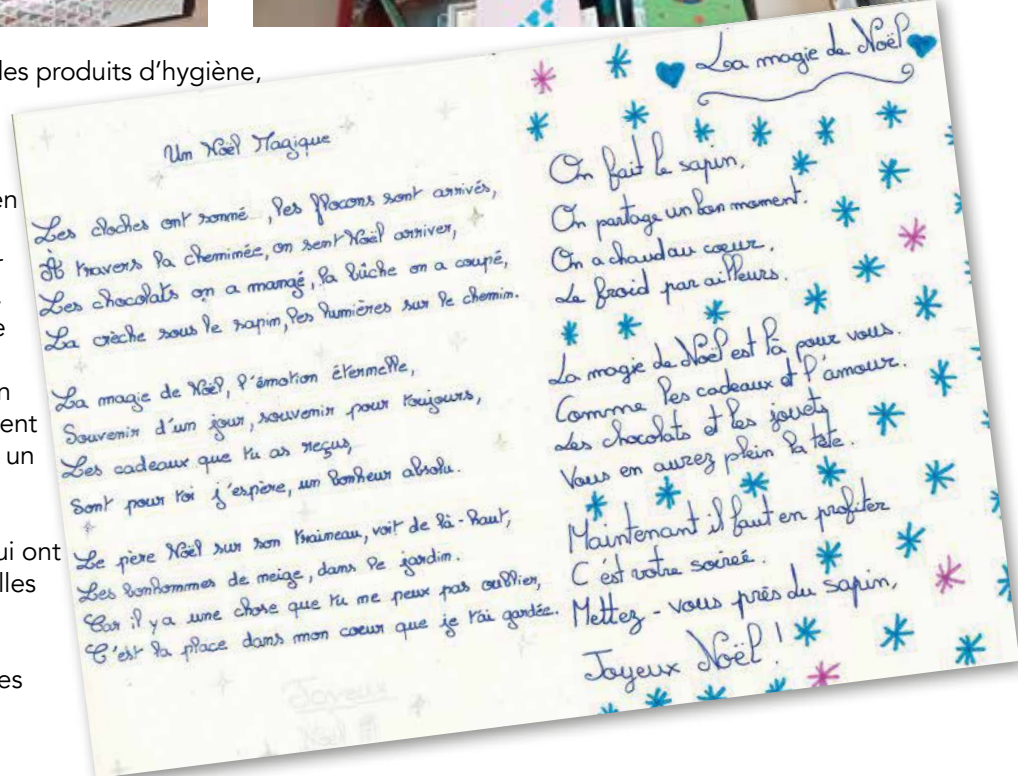 les produits d'hygiène,
en
r
e
n
ent
un
ui ont
lles
es
Un Noël Magique
Les cloches ont sonné, les flocons sont arrivés,
À travers la cheminée, on sent Noël arriver,
Les chocolats on a mangé, la bûche on a coupé,
La crèche sous le sapin, les lumières sur le chemin.
La magie de Noël, l'émotion éternelle,
Souvenir d'un jour, souvenir pour toujours,
Les cadeaux que tu as reçus,
Sont pour toi j'espère, un bonheur absolu.
Le père Noël sur son traineau, voit de là-haut,
Les bonhommes de neige, dans le jardin.
Car il y a une chose que tu ne peux pas oublier,
C'est la place dans mon coeur que je t'ai gardée.
Joyeux
Noël
La magie de Noël
On fait le sapin.
On partage un bon moment.
On a chaud au coeur.
Le froid par ailleurs.
La magie de Noël est là pour vous.
Comme les cadeaux et l'amour.
Les chocolats et les jouets
Vous en aurez plein la tête.
Maintenant il faut en profiter
C'est votre soirée.
Mettez-vous près du sapin,
Joyeux Noël !